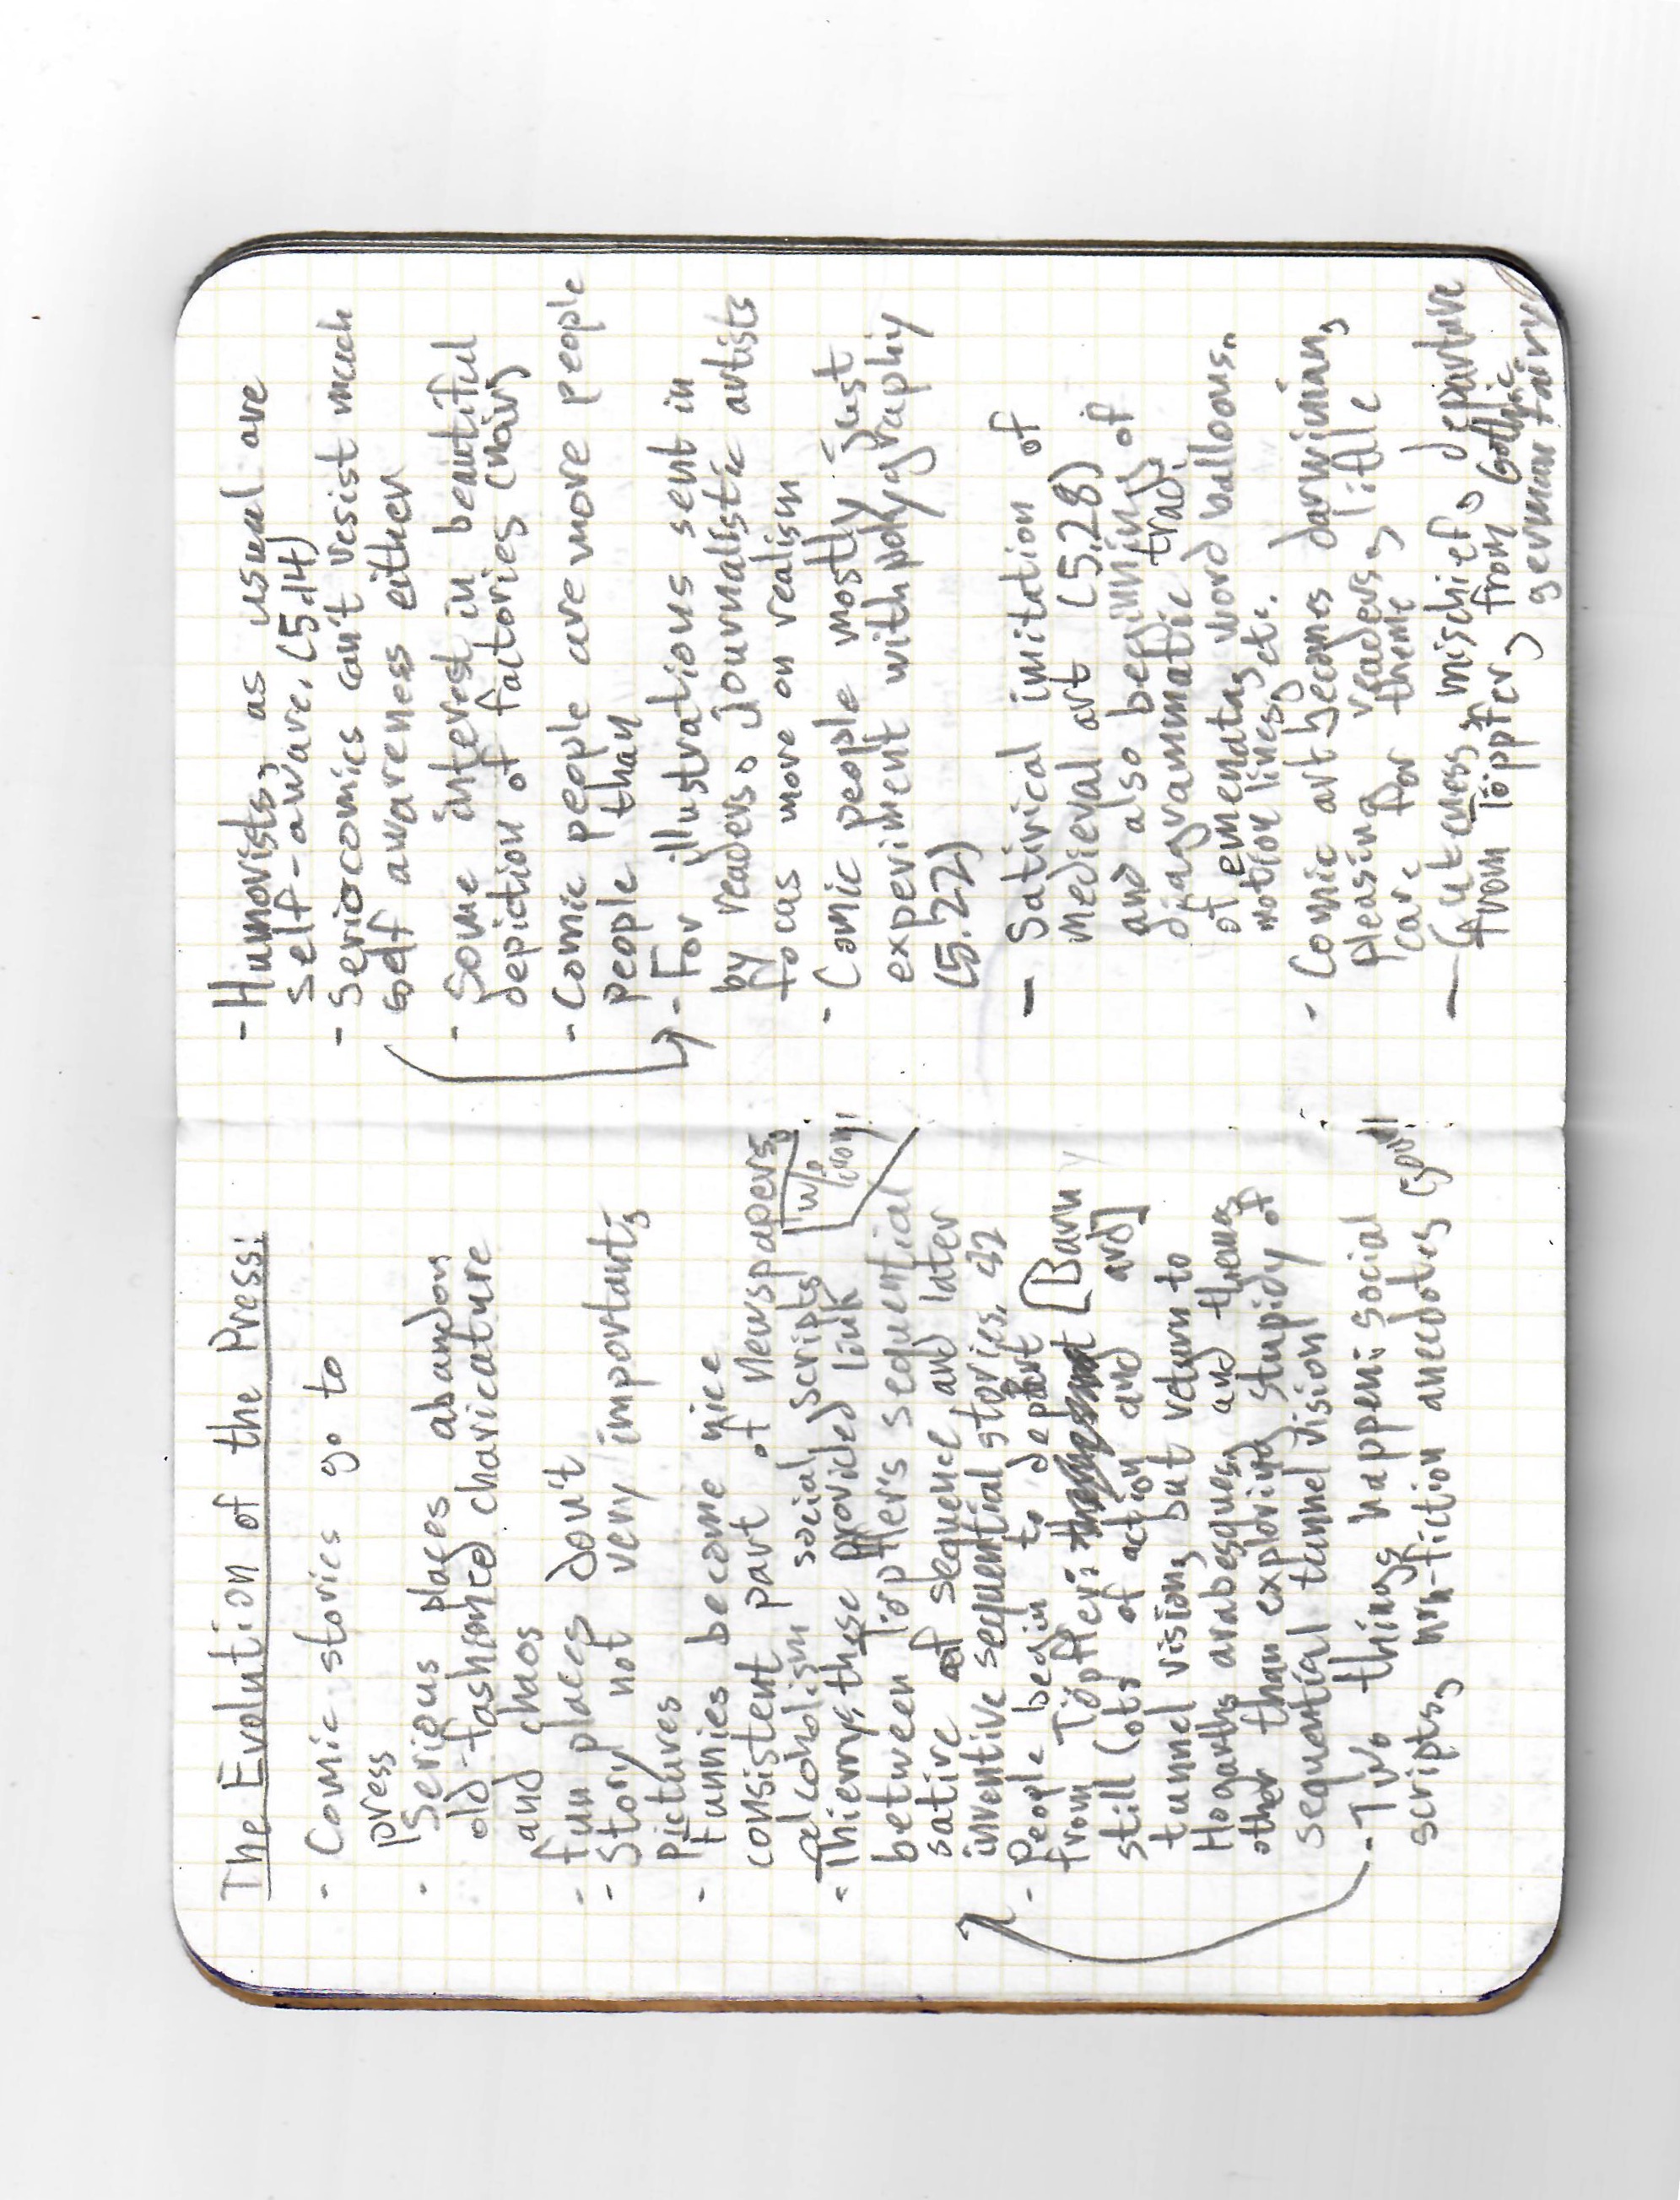 The Evolution of the Press:
- Comic stories go to
press
- Serious places abandon
old-fashioned charicature
and chaos
- fun places don't
- Story not very important,
pictures
- Funnies become nice
consistent part of newspapers,
alcoholism social scripts [w/o irony!
- Thierry: these provided link
between Töpffer's sequential
satire of sequence, and later
inventive sequential stories. 82
- People begin to depart
from Töpffer: [Barn
still lots of action and ard]
tunnel vision, but return to
Hogarths arabesques, and themes
other than exploring stupidy of
sequential tunnel vision
- Two things happen: social
scripts, non-fiction anecdotes
- Humorists, as usual are
self-aware. (5.14)
- Seriocomics can't resist much
self awareness either
- Some interest in beautiful
depiction of factories (noir)
- Comic people are more people
people than
- For illustrations sent in
by readers. journalistic artists
focus more on realism
- Comic people mostly just
experiment with polygraphy
(5.22)
- Satirical imitation of
medieval art (5.28)
and also beginning of
diagrammatic trad.
of emenata, word balloons.
motion lines, etc.
- Comic art becomes darwinian,
pleasing readers, little
care for theme
- Cuteness, mischief, departure
from Töppfer, from Gothic
german fairy